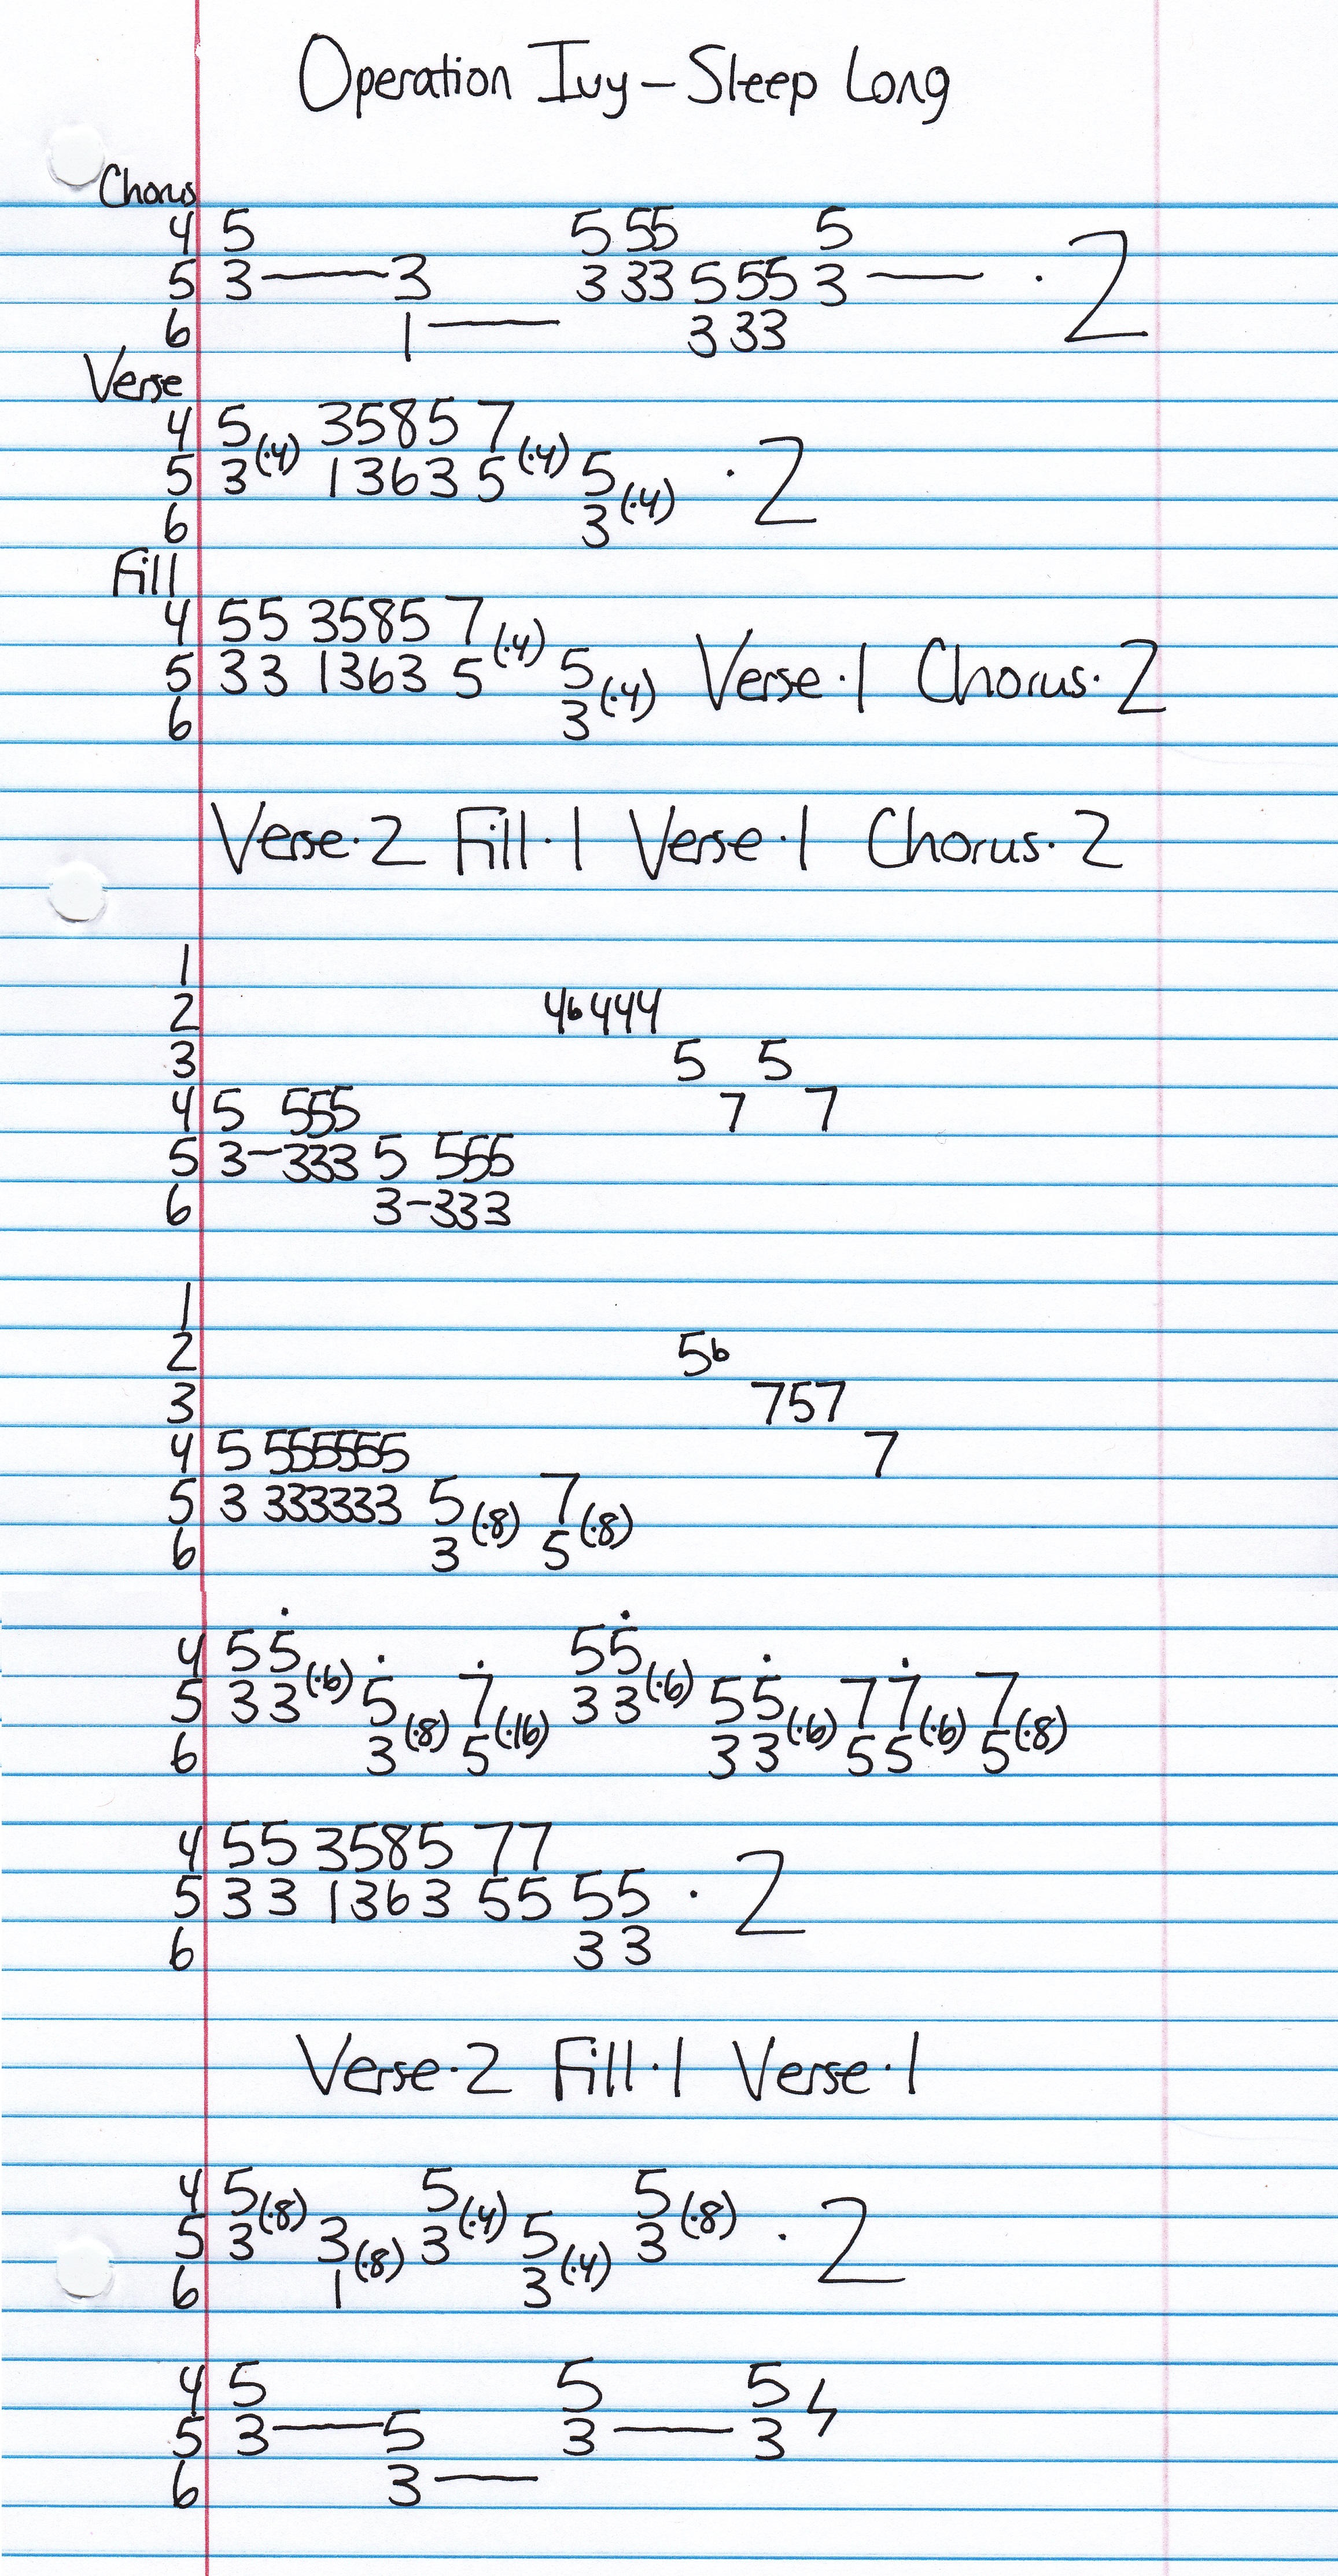 Operation Ivy – Sleep Long
Chorus
4 5 5 55 5
5 3 — 3 3 33 5 55 3 — · 2
6 1 — 3 33
Verse
4 5 (·4) 3585 7 (·4)
5 3 1363 5 5 (·4) · 2
6 3
Fill
4 55 3585 7 (·4)
5 33 1363 5 5 (·4) Verse·1 Chorus·2
6 3
Verse·2 Fill·1 Verse·1 Chorus·2
1
2 4b444
3 5 5
4 5 555 7 7
5 3–333 5 555
6 3–333
1
2 5b
3 757
4 5 555555 7
5 3 333333 5 (·8) 7 (·8)
6 3 5
4 55 (·6) 55 (·6)
5 33 5 (·8) 7 (·16) 33 55 (·6) 77 (·6) 7 (·8)
6 3 5 33 55 5
4 55 3585 77
5 33 1363 55 55 · 2
6 33
Verse·2 Fill·1 Verse·1
4 5 (·8) 5 (·4) 5 (·8)
5 3 3 (·8) 3 5 (·4) 3 · 2
6 1 3
4 5 5 5
5 3 — 5 3 — 3
6 3 —